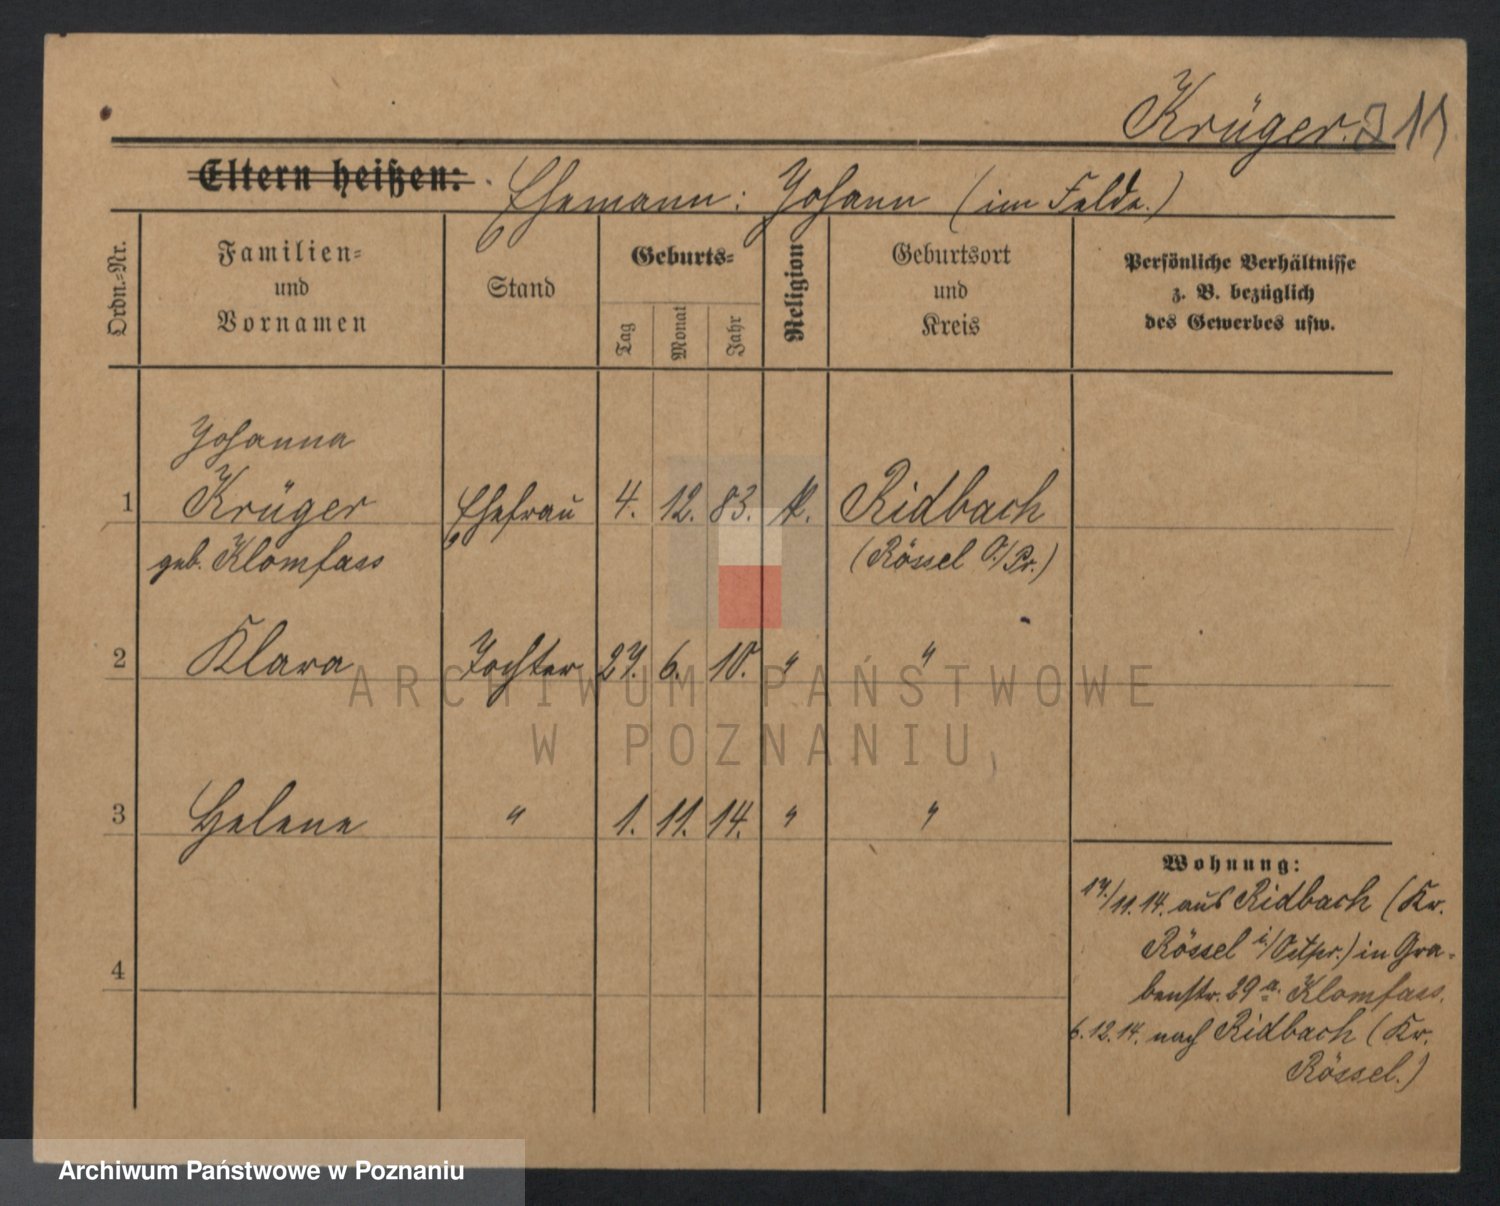 Krüger. J 11
Eltern heißen: Ehemann: Johann (im Felde.)
Ordn.-Nr.
Familien-
und
Vornamen
Stand
Geburts-
Tag
Monat
Jahr
Religion
Geburtsort
und
Kreis
Persönliche Verhältnisse
z. B. bezüglich
des Gewerbes usw.
Johanna
1 Krüger Ehefrau 4. 12. 83. k. Ridbach
geb. Klomfass (Rössel O/Pr.)
2 Klara Tochter 27. 6. 10. " "
ARCHIWUM PAŃSTWOWE
W POZNANIU
3 Helene " 1. 11. 14. " "
Wohnung:
17./11. 14. aus Ridbach (Kr.
Rössel i/Ostpr.) in Gra-
benstr. 29 a. Klomfass.
4
6. 12. 14. nach Ridbach (Kr.
Rössel.)
Archiwum Państwowe w Poznaniu